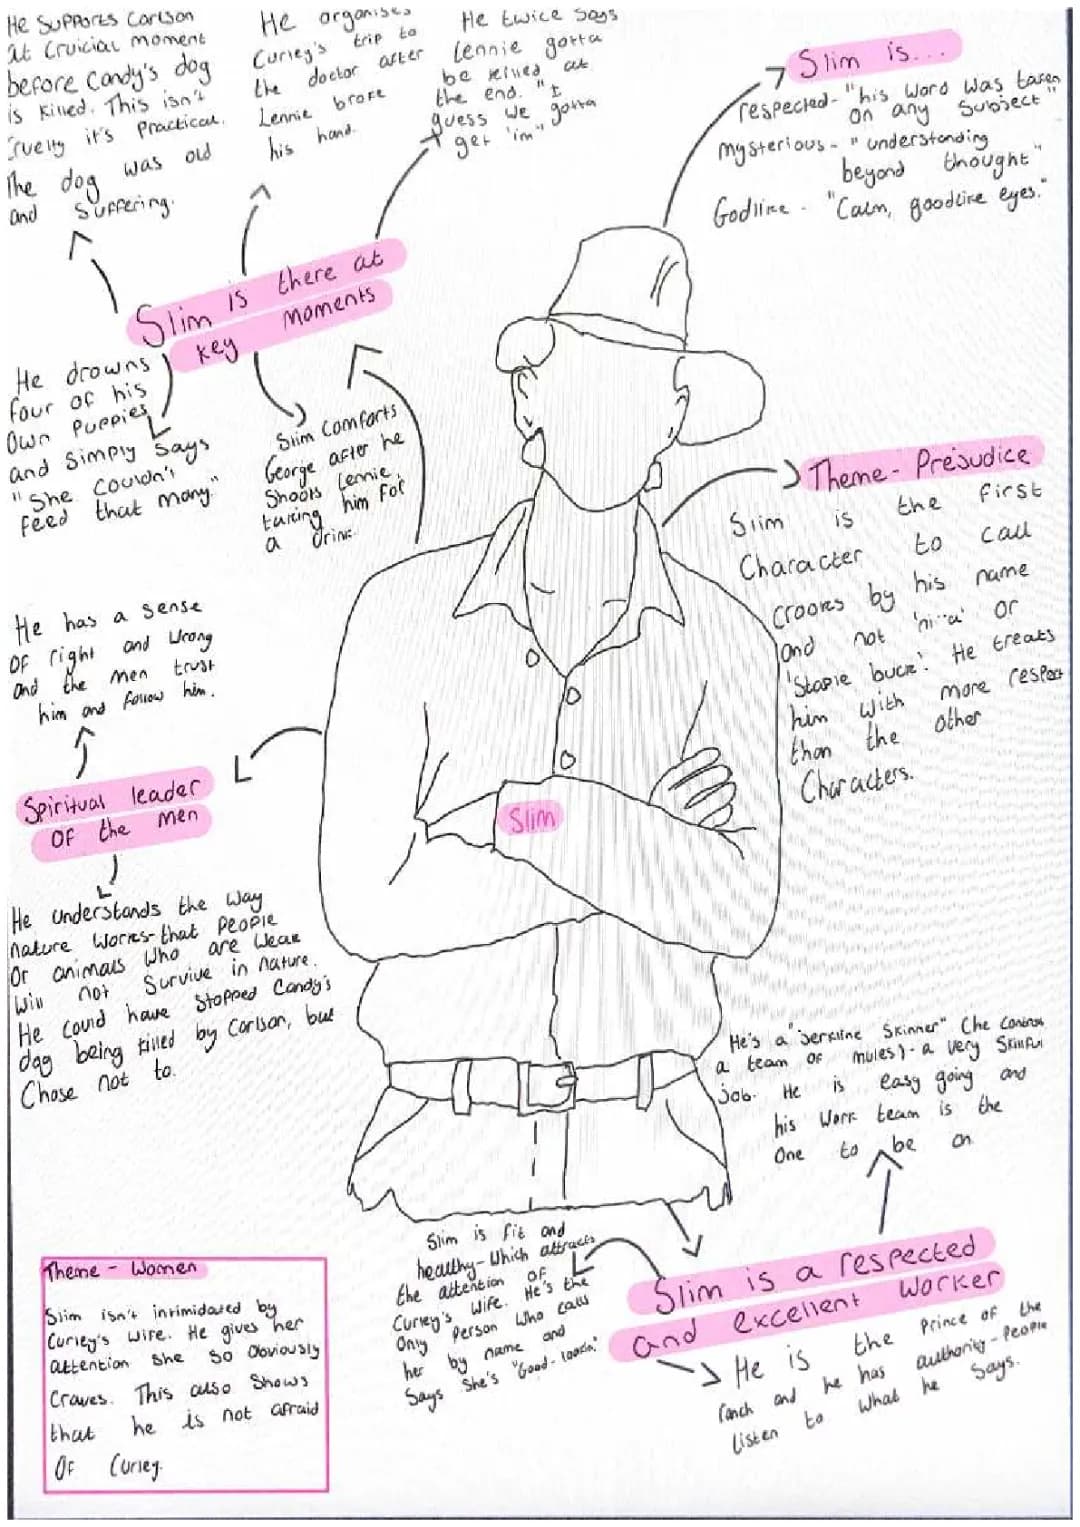 He supports Carlson
at cruicial moment
before Candy's dog
is killed. This isn't
cruelty it's practical.
The dog was old
and suffering.
He organises
Curley's trip to
the doctor after
Lennie broke
his hand.
He twice says
Lennie gotta
be killed at
the end. "I
guess we gotta
get 'im"
Slim is...
respected - "his word was taken
on any subject"
mysterious - "understanding
beyond thought"
Godlike - "Calm, goodlike eyes."
Slim is there at
key moments
He drowns
four of his
own puppies
and simply says
"She couldn't
feed that many."
Slim comforts
George after he
shoots Lennie,
taking him for
a drink.
Theme - Prejudice
Slim is the first
character to call
Crooks by his name
and not 'ni··a' or
'Stable buck'. He treats
him with more respect
than the other
characters.
He has a sense
of right and wrong
and the men trust
him and follow him.
Spiritual leader
of the men
He understands the way
nature works - that people
or animals who are weak
will not survive in nature.
He could have stopped Candy's
dog being killed by Carlson, but
chose not to.
Slim
He's a "jerkline skinner" (he controls
a team of mules) - a very skillful
job. He is easy going and
his work team is the
one to be on
Slim is a respected
and excellent worker
He is the prince of the
ranch and he has authority - people
listen to what he says.
Slim is fit and
healthy - which attracts
the attention of
Curley's wife. He's the
only person who calls
her by name and
says she's "Good-lookin"
Theme - Women
Slim isn't intimidated by
Curley's wife. He gives her
attention she so obviously
craves. This also shows
that he is not afraid
of Curley.